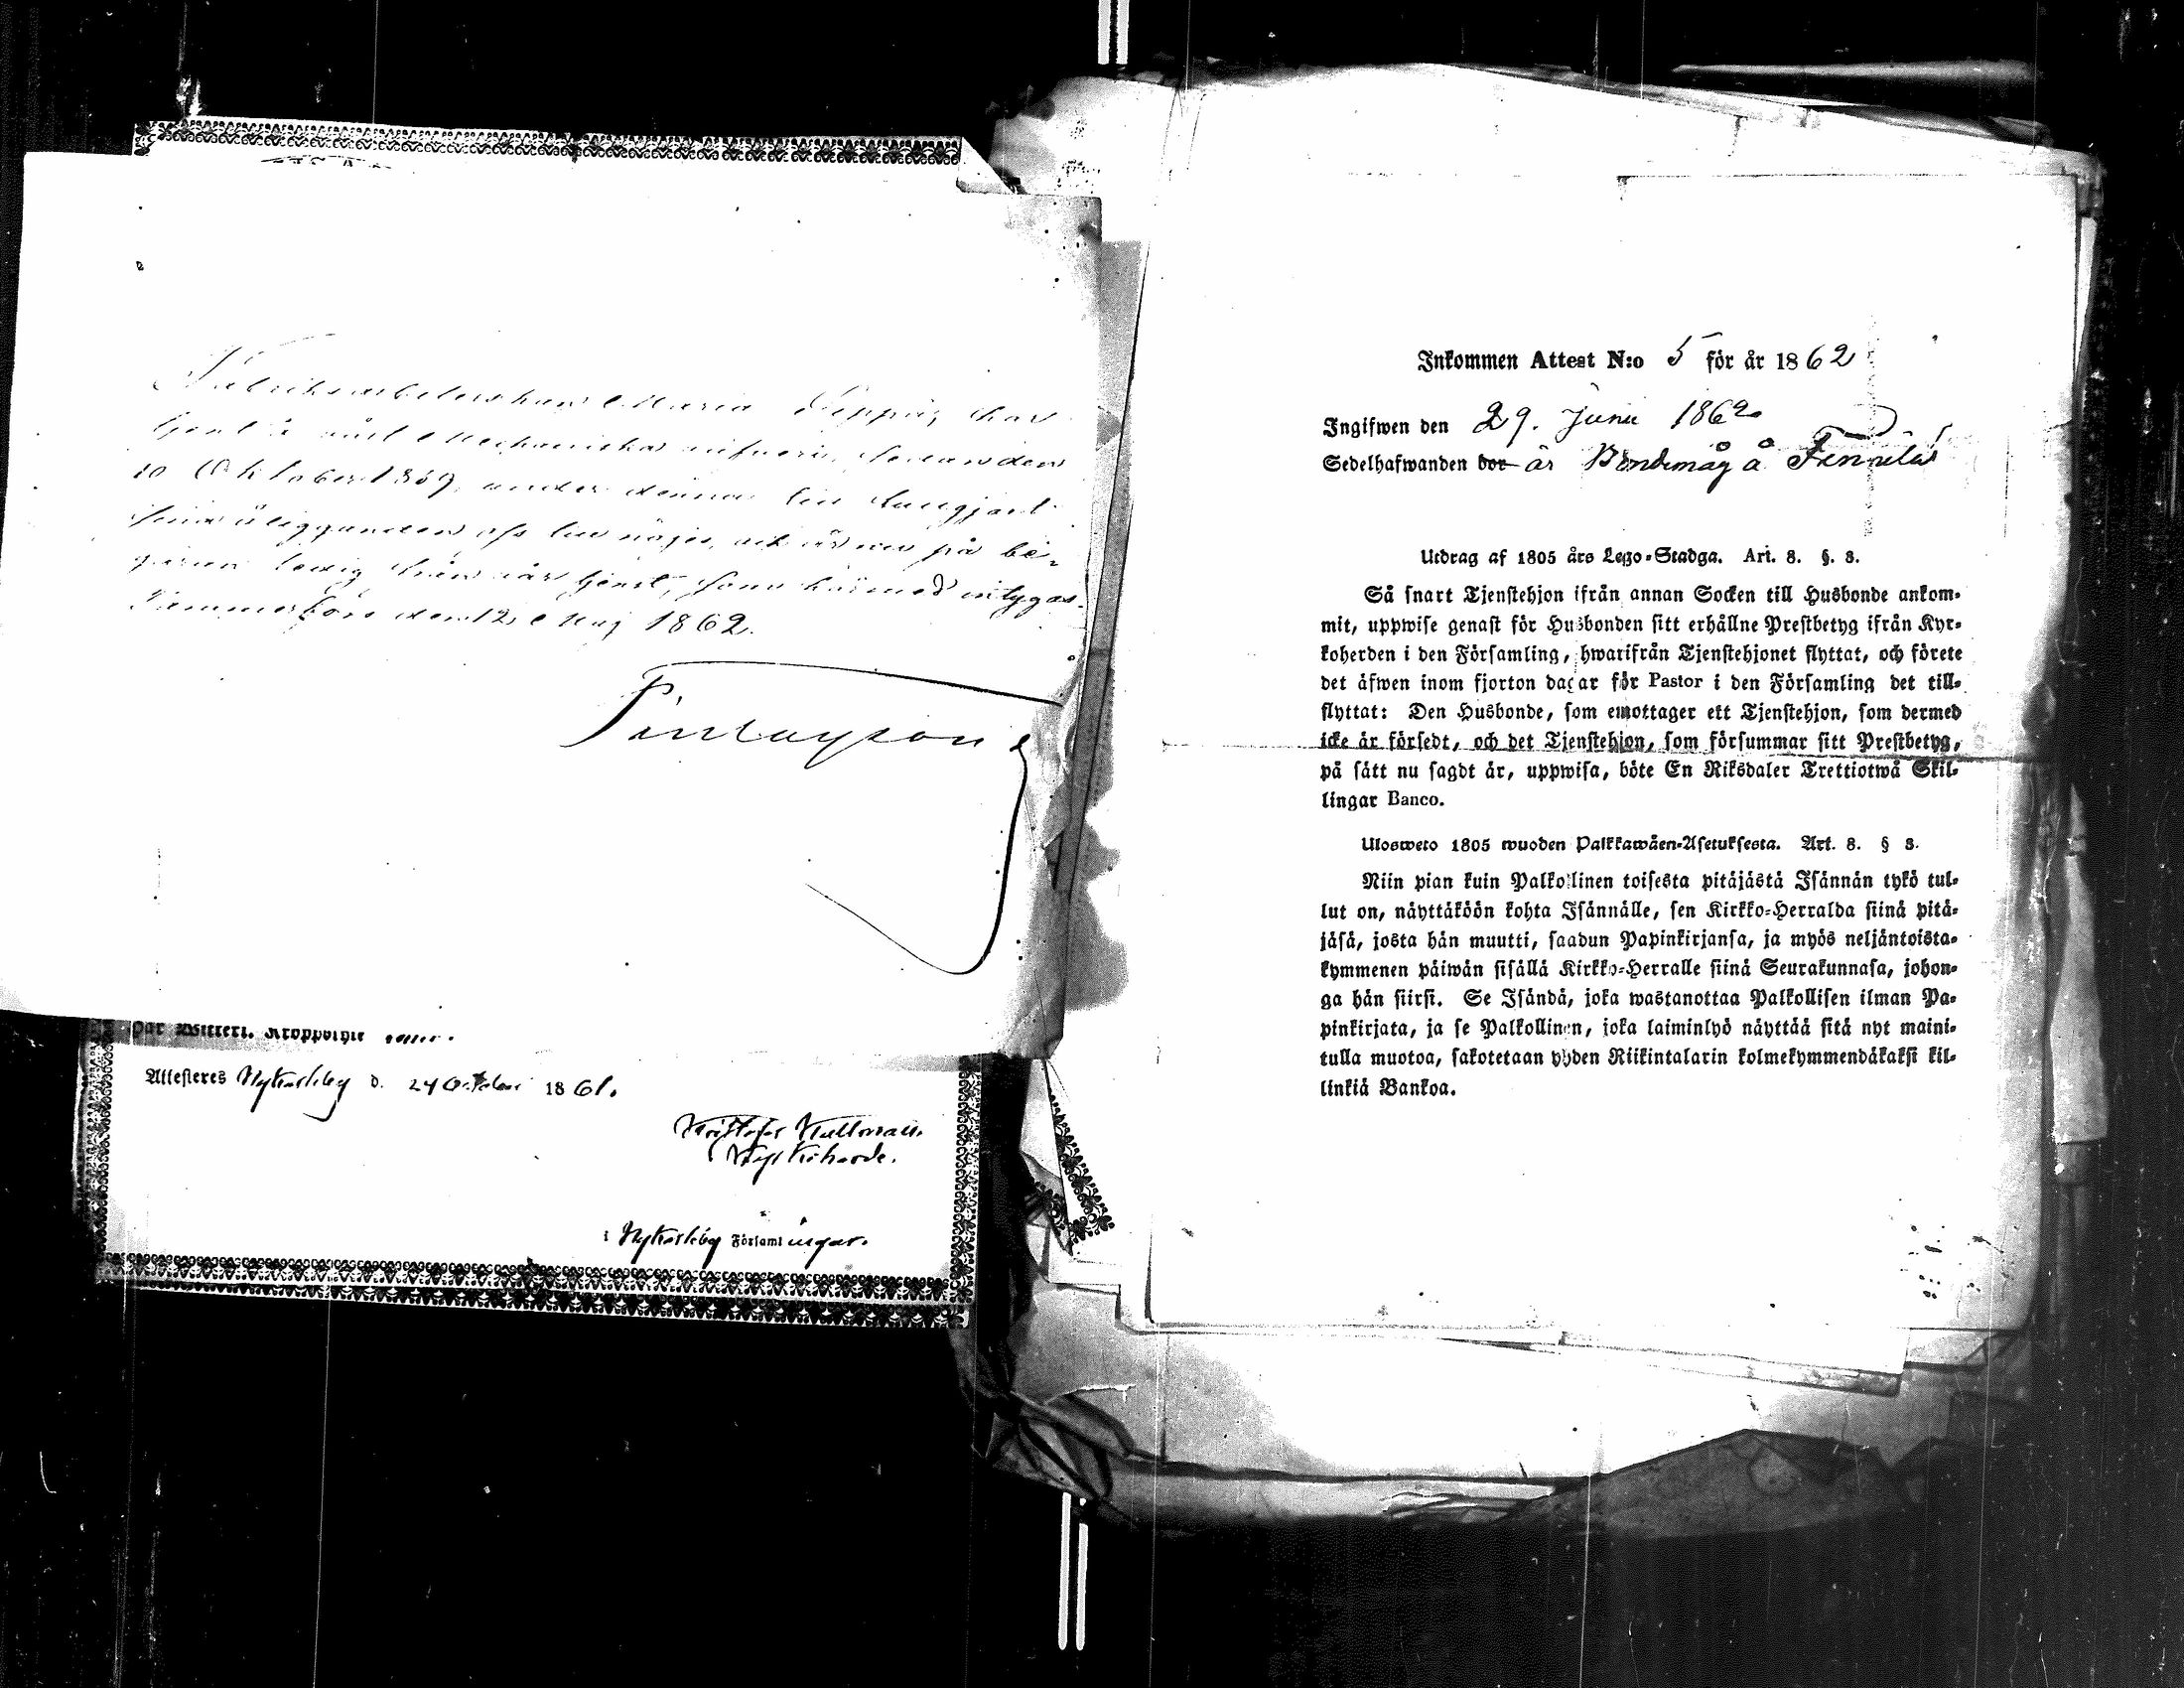 Fabriksarbeterskan Maria Seppä, har
tjent å vårt Mechaniska sedan den
10 Oktober 1859, under denna tid
sina åligganden oss till nöjes, och är nu på be-
gäran ledig från vår tjenst, som härmed intygas.
Tammerfors den 12 Maj 1862.
Finlayson
har Witteri. Kroppolyte
Attesteres Nykarleby d. 24 October 1861.
i Nykarleby Församlingar.
Inkommen Attest N:o 5 för år 1862
Ingifwen den 29. Juni 1862
Sedelhafwanden bor är Bondmåg å
Utdrag af 1805 års Lego-Stadga. Art. 8. §. 3.
Så snart Tjenstehjon ifrån annan Socken till Husbonde ankom-
mit, uppwise genast för Husbonden sitt erhållne Prestbetyg ifrån Kyr-
koherden i den Församling, hwarifrån Tjenstehjonet flyttat, och förete
det äfwen inom fjorton dagar för Pastor i den Församling det till-
flyttat: Den Husbonde, som emottager ett Tjenstehjon, som dermed
icke är försedt, och det Tjenstehjon, som försummar sitt Prestbetyg,
på sätt nu sagdt är, uppwisa, böte En Riksdaler Trettiotwå Skil-
lingar Banco.
Ulosweto 1805 wuoden Palkkawäen-Asetuksesta. Art. 8. § 3.
Niin pian kuin Palkollinen toisesta pitäjästä Isännän tykö tul-
lut on, näyttäköön kohta Isännälle, sen Kirkko-Herralda siinä pitä-
jäsä, josta hän muutti, saadun Papinkirjansa, ja myös neljäntoista-
kymmenen päiwän sisällä Kirkko-Herralle siinä Seurakunnasa, johon-
ga hän siirsi. Se Isändä, joka wastanottaa Palkollisen ilman Pa-
pinkirjata, ja se Palkollinen, joka laiminlyö näyttää sitä nyt maini-
tulla muotoa, sakotetaan yhden Riikintalarin kolmekymmendäkaksi kil-
linkiä Bankoa.